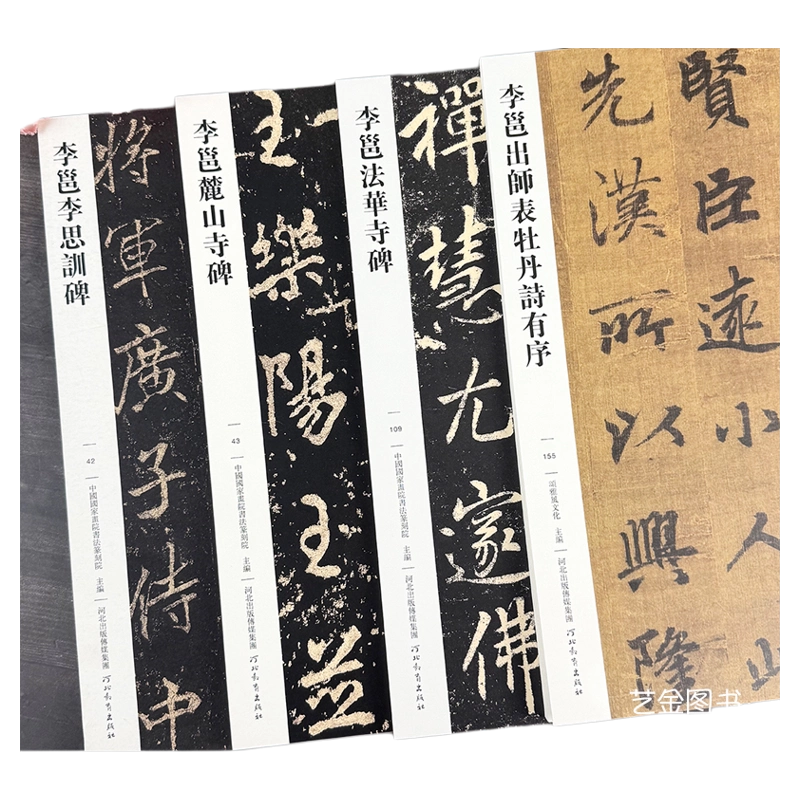 李邕李思訓碑
42
中國國家畫院書法篆刻院 主編
河北出版傳媒集團
河北教育出版社
將軍廣子侍中
李邕麓山寺碑
43
中國國家畫院書法篆刻院 主編
河北出版傳媒集團
河北教育出版社
玉樂陽玉並
李邕法華寺碑
109
中國國家畫院書法篆刻院 主編
河北出版傳媒集團
河北教育出版社
禪慧尤邃佛
李邕出師表牡丹詩有序
155
頌雅風文化 主編
河北出版傳媒集團
河北教育出版社
賢臣遠小人
先漢所以興隆
艺金图书